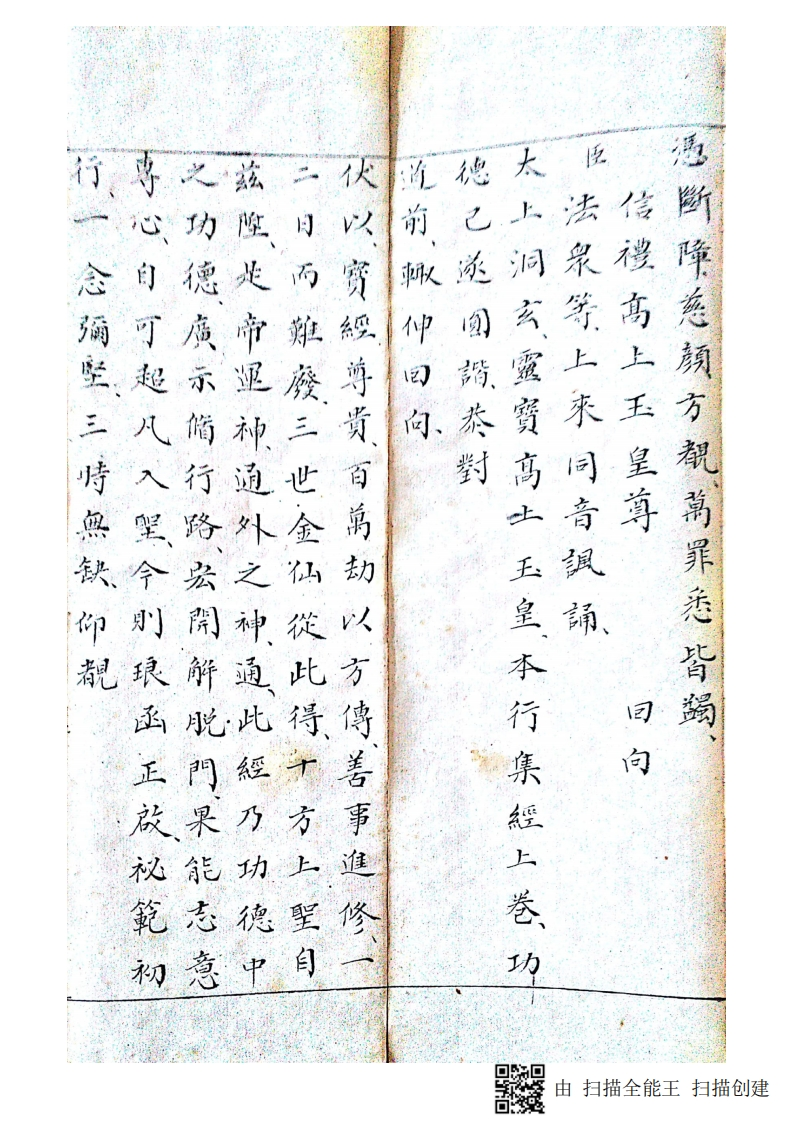 憑斷障慈顏方覩、萬罪悉皆蠲、
信禮高上玉皇尊　　囬向
臣　法衆等、上來同音諷誦、
太上洞玄、靈寶高上玉皇、本行集經上卷、功
德已遂圓諧、恭對
道前、輙伸囬向、
伏以、寶經尊貴、百萬劫以方傳、善事進修、一
二日而難廢、三世金仙從此得、十方上聖自
兹陞、是帝運神、通外之神、通、此經乃功德中
之功德、廣示脩行路、宏開解脱門、果能志意
專心、自可超凡入聖、今則琅函正啟、祕範初
行、一念彌堅、三時無缺、仰覩
由 扫描全能王 扫描创建